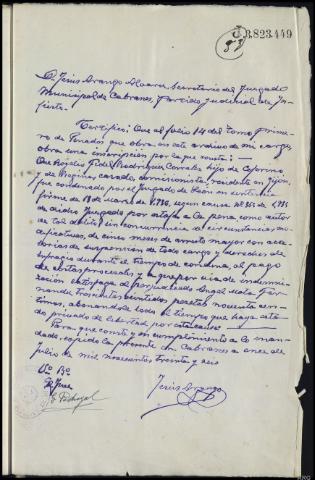 J.3.823.449
D. Jesús Arango Alvarez Secretario del Juzgado
Municipal de Cabranes, Partido Judicial de In-
fiesto.
Certifico: Que al folio 14 del tomo prime-
ro de Penados que obra en este archivo de mi cargo,
obra una inscripción por la que consta:
Que Rogelio Rodriguez Corrales, hijo de Ceferino
y de Regina, casado, comisionista, residente en Gijón,
fue condenado por el Juzgado de León en sentencia
firme de 18 de marzo de 1.936, según causa Nº 365 de 1.935
de dicho Juzgado por estafa a la pena como autor
de tal delito sin concurrencia de circunstancias mo-
dificativas, de cinco meses de arresto mayor con acce-
sorias de suspensión de todo cargo y derecho de
sufragio durante el tiempo de condena, al pago
de costas procesales y a que por via de indemni-
zación satisfaga al perjudicado Angel Mata Fer-
nandez trescientas veintidos pesetas noventa cén-
timos, abonandole todo el tiempo que haya esta-
do privado de libertad por esta causa.
Para que conste y en cumplimiento a lo man-
dado, expido la presente en Cabranes a once de
Julio de mil novecientos treinta y seis
Vº Bº
El Juez
Jesús Arango